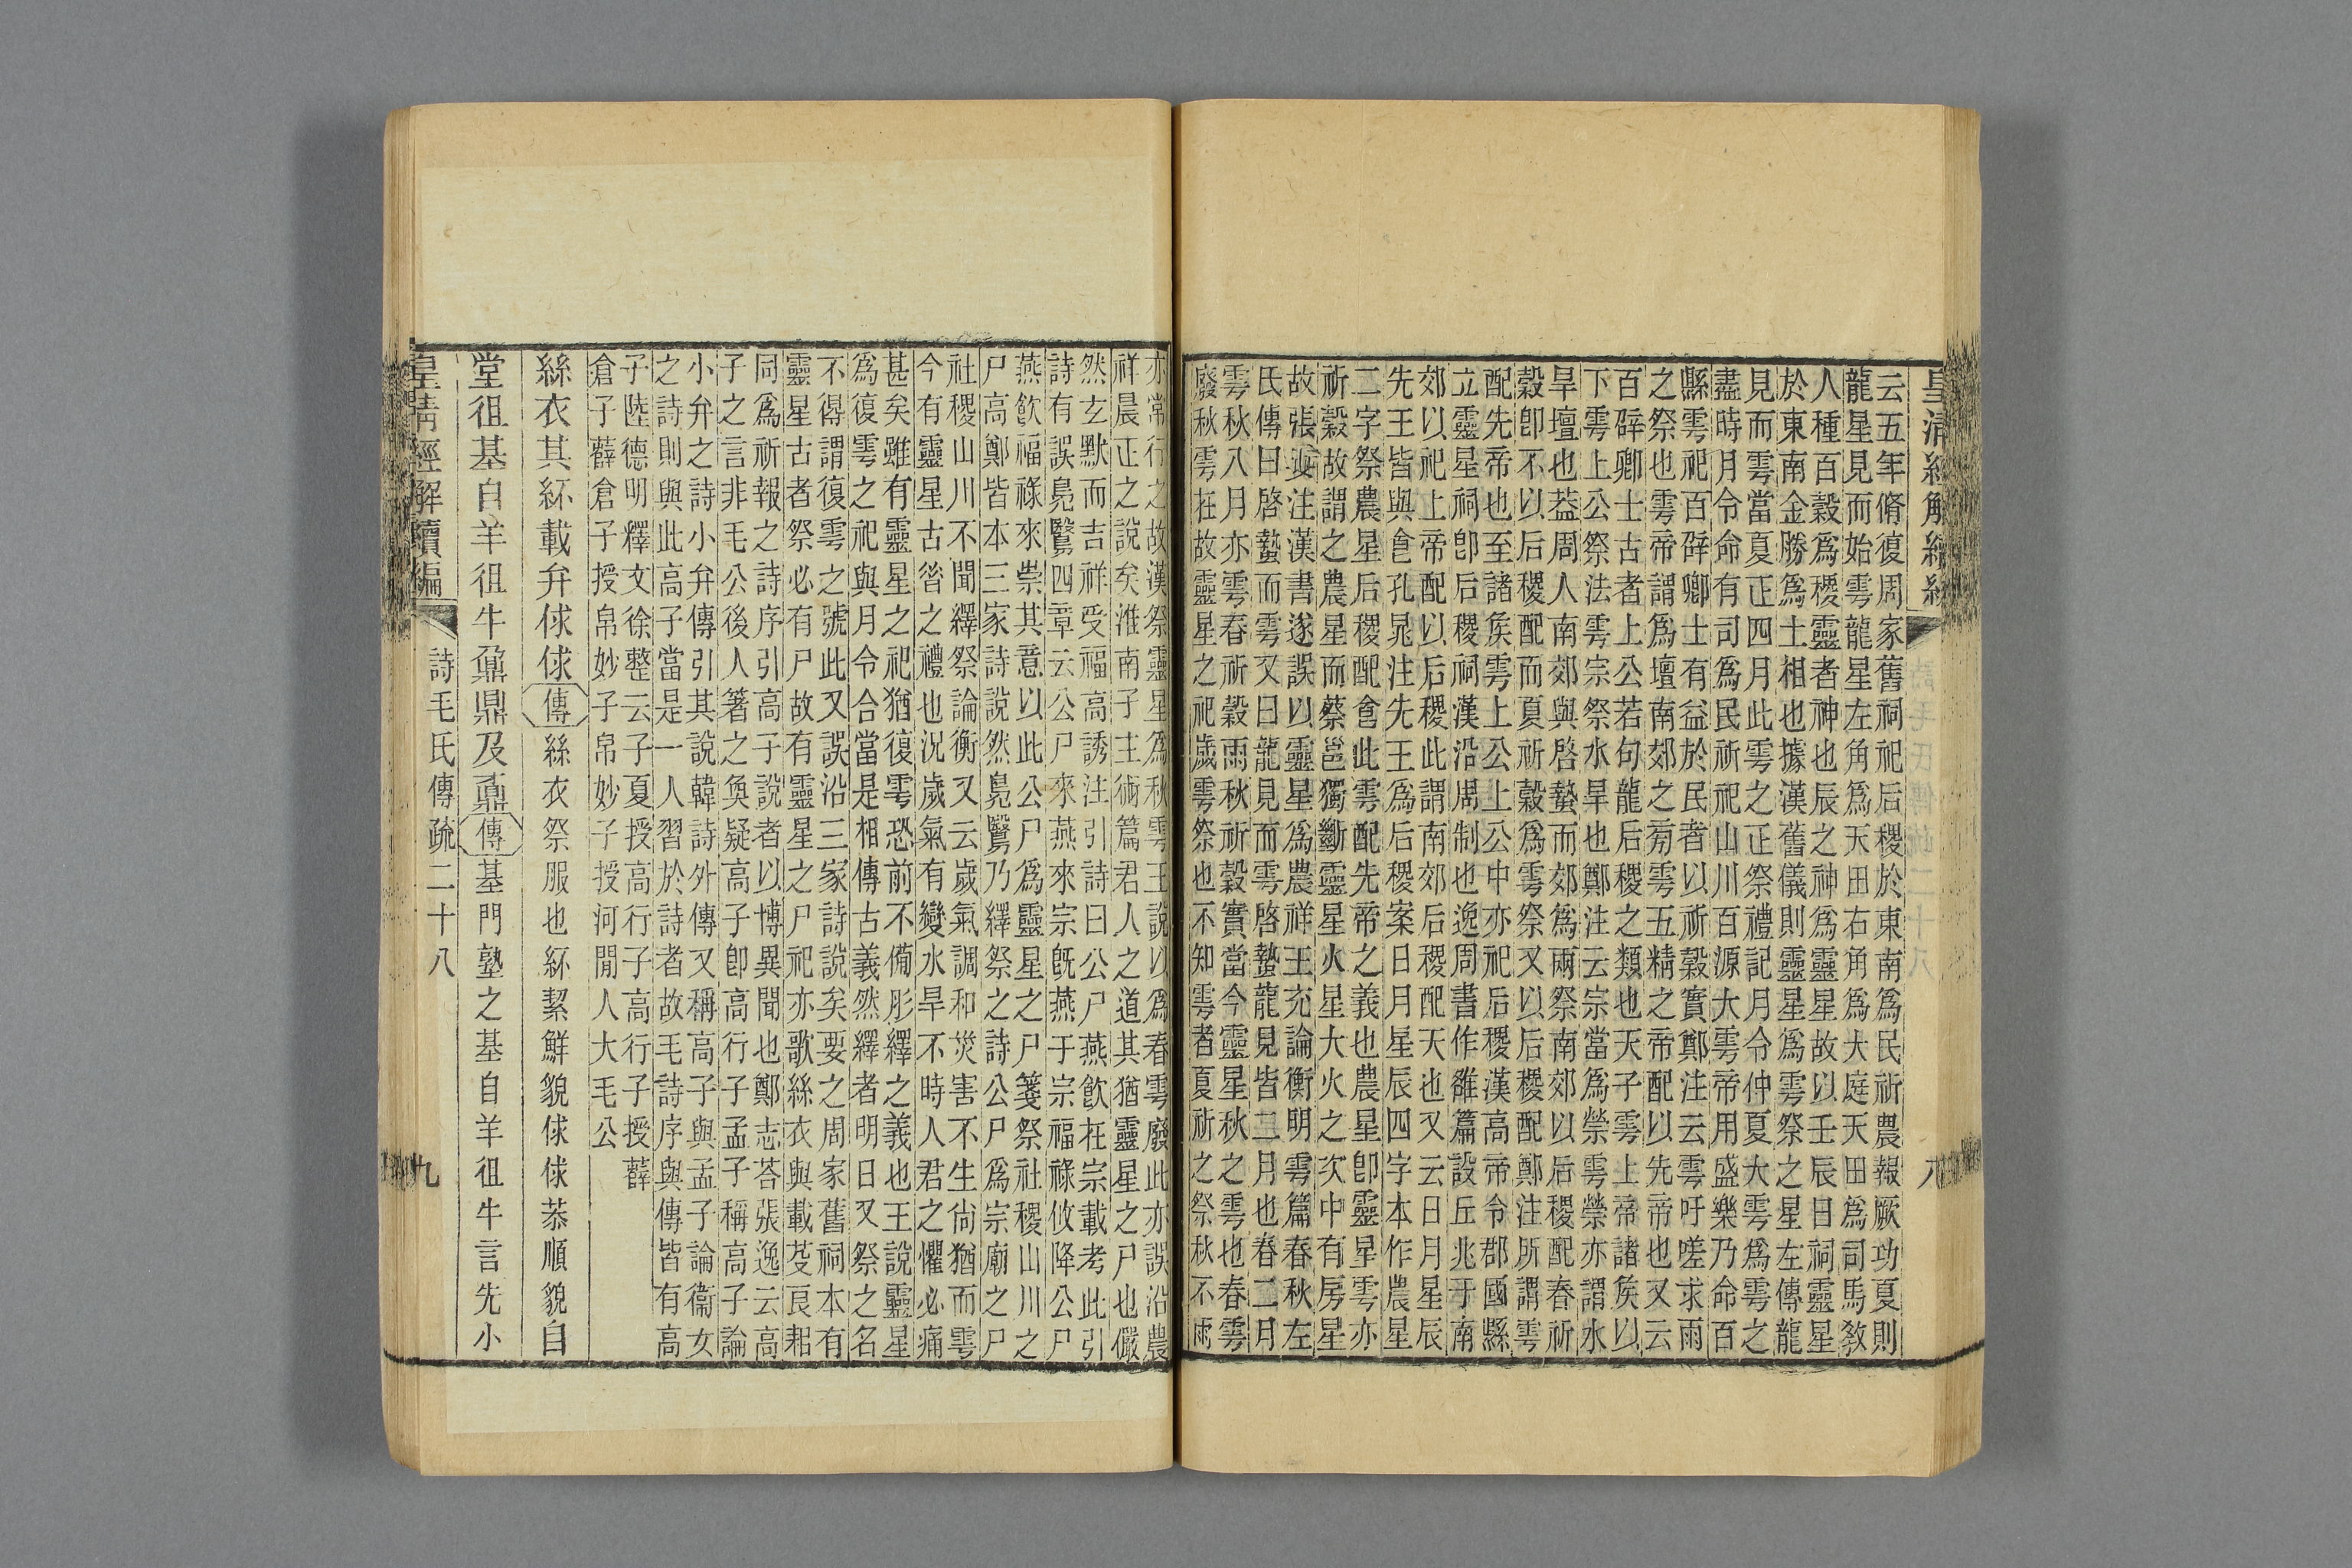 皇清經解續編
八
云五年脩復周家舊祠祀后稷於東南爲民祈農報厥功夏則
龍星見而始雩龍星左角爲天田右角爲大庭天田爲司馬敎
人種百穀爲稷靈者神也辰之神爲靈星故以壬辰日祠靈星
於東南金勝爲土相也據漢舊儀則靈星爲雩祭之星左傳龍
見而雩當夏正四月此雩之正祭禮記月令仲夏大雩爲雩之
盡時月令命有司爲民祈祀山川百源大雩帝用盛樂乃命百
縣雩祀百辟卿士有益於民者以祈穀實鄭注云雩吁嗟求雨
之祭也雩帝謂爲壇南郊之旁雩五精之帝配以先帝也又云
百辟卿士古者上公若句龍后稷之類也天子雩上帝諸矦以
下雩上公祭法雩宗祭水旱也鄭注云宗當爲禜雩禜亦謂水
旱壇也葢周人南郊與啓蟄而郊爲兩祭南郊以后稷配春祈
穀卽不以后稷配而夏祈穀爲雩祭又以后稷配鄭注所謂雩
配先帝也至諸矦雩上公上公中亦祀后稷漢高帝令郡國縣
立靈星祠卽后稷祠漢沿周制也逸周書作雒篇設丘兆于南
郊以祀上帝配以后稷此謂南郊后稷配天也又云日月星辰
先王皆與㑹孔晁注先王爲后稷案日月星辰四字本作農星
二字祭農星后稷配㑹此雩配先帝之義也農星卽靈星雩亦
祈穀故謂之農星而蔡邕獨斷靈星火星大火之次中有房星
故張晏注漢書遂誤以靈星爲農祥王充論衡明雩篇春秋左
氏傳曰啓蟄而雩又曰龍見而雩啓蟄龍見皆二月也春二月
雩秋八月亦雩春祈穀雨秋祈穀實當今靈星秋之雩也春雩
廢秋雩在故靈星之祀歲雩祭也不知雩者夏祈之祭秋不雨
亦常行之故漢祭靈星爲秋雩王說以爲春雩廢此亦誤沿農
祥晨正之說矣淮南子主術篇君人之道其猶靈星之尸也儼
然玄默而吉祥受福高誘注引詩曰公尸燕飮在宗載考此引
詩有誤鳧鷖四章云公尸來燕來宗旣燕于宗福祿攸降公尸
燕飮福祿來崇其意以此公尸爲靈星之尸箋祭社稷山川之
尸高鄭皆本三家詩說然鳧鷖乃繹祭之詩公尸爲宗廟之尸
社稷山川不聞繹祭論衡又云歲氣調和災害不生尙猶而雩
今有靈星古昔之禮也況歲氣有變水旱不時人君之懼必痛
甚矣雖有靈星之祀猶復雩恐前不備肜繹之義也王說靈星
爲復雩之祀與月令合當是相傳古義然繹者明日又祭之名
不得謂復雩之號此又誤沿三家詩說矣要之周家舊祠本有
靈星古者祭必有尸故有靈星之尸祀亦歌絲衣與載芟良耜
同爲祈報之詩序引高子說者以博異聞也鄭志荅張逸云高
子之言非毛公後人箸之奐疑高子卽高行子孟子稱高子論
小弁之詩小弁傳引其說韓詩外傳又稱高子與孟子論衞女
之詩則與此高子當是一人習於詩者故毛詩序與傳皆有高
子陸德明釋文徐整云子夏授高行子高行子授薛
倉子薛倉子授帛妙子帛妙子授河閒人大毛公
絲衣其紑載弁俅俅傳絲衣祭服也紑絜鮮貌俅俅恭順貌自
堂徂基自羊徂牛鼐鼎及鼒傳基門塾之基自羊徂牛言先小
皇清經解續編
詩毛氏傳疏二十八
九